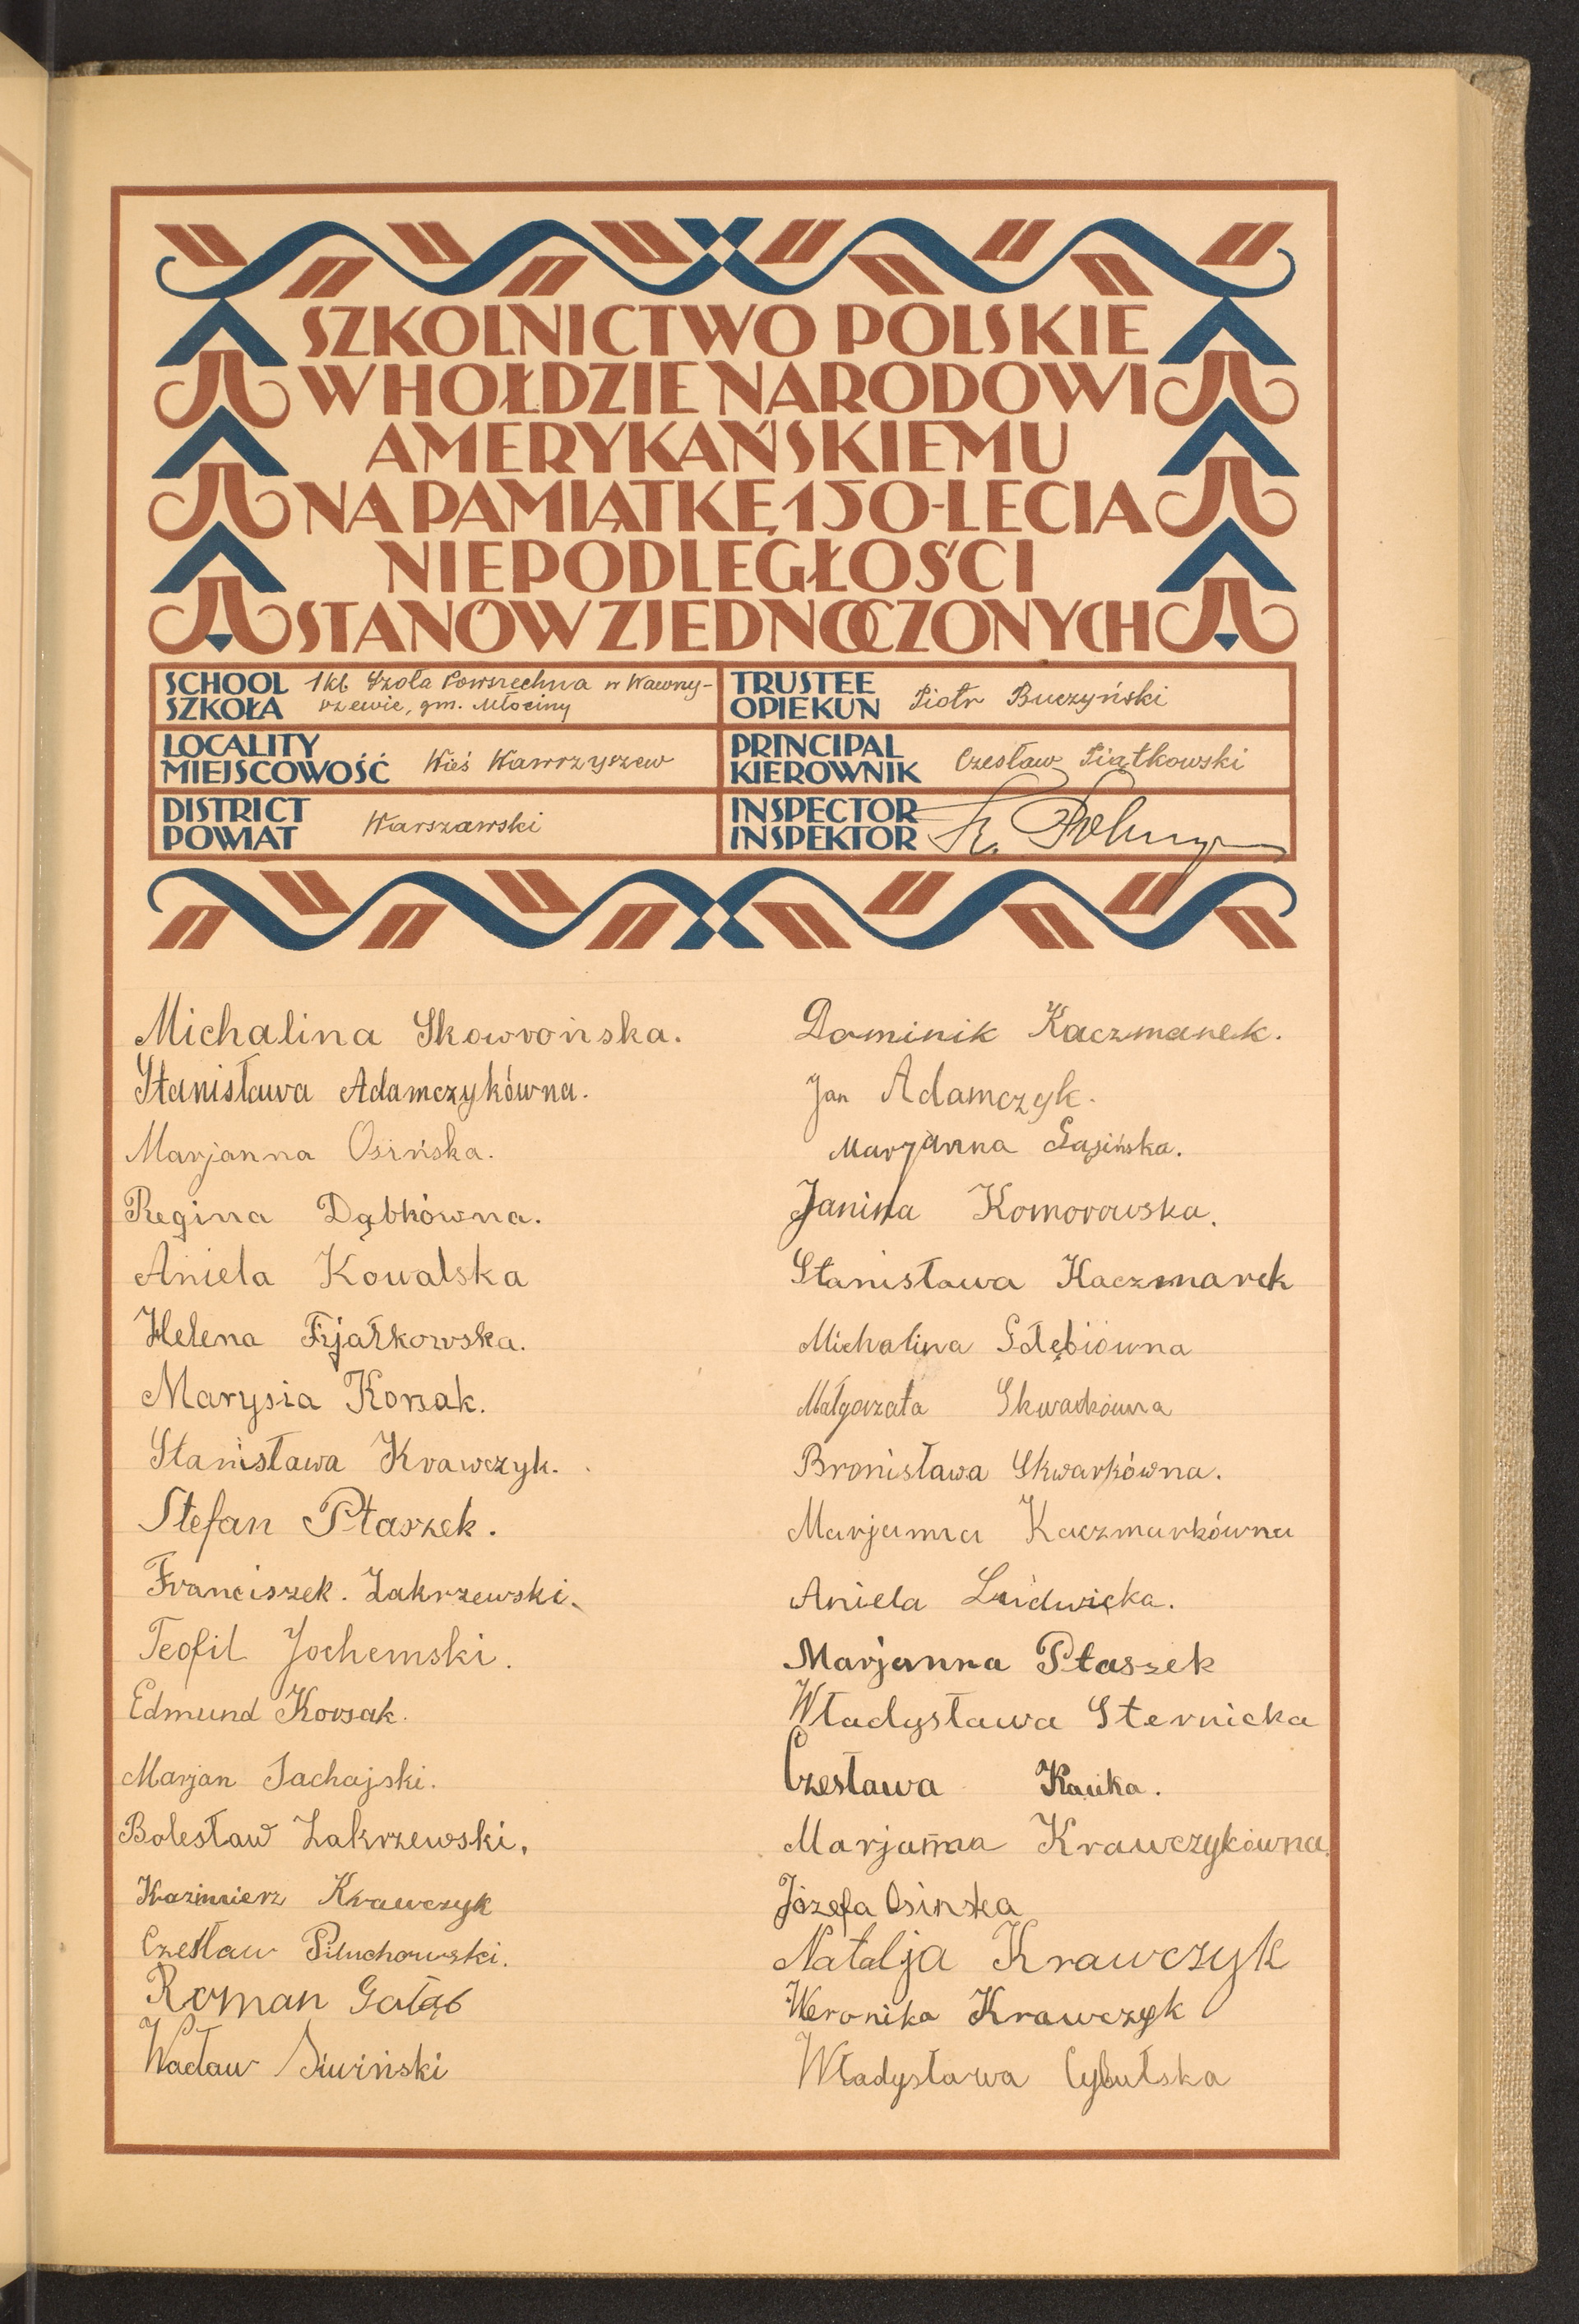 SZKOLNICTWO POLSKIE
W HOŁDZIE NARODOWI
AMERYKAŃSKIEMU
NA PAMIĄTKĘ 150-LECIA
NIEPODLEGŁOŚCI
STANÓW ZJEDNOCZONYCH
SCHOOL
SZKOŁA
1 kl. Szoła Powszechna w Wawry-
szewie, gm. Młociny
TRUSTEE
OPIEKUN
Piotr Buczyński
LOCALITY
MIEJSCOWOŚĆ
Wieś Wawrzyszew
PRINCIPAL
KIEROWNIK
Czesław Piątkowski
DISTRICT
POWIAT
Warszawski
INSPECTOR
INSPEKTOR
Michalina Skowrońska.
Stanisława Adamczykówna.
Marjanna Osińska.
Regina Dąbkówna.
Aniela Kowalska
Helena Fijałkowska.
Marysia Korsak.
Stanisława Krawczyk.
Stefan Ptaszek.
Franciszek. Zakrzewski.
Teofil Jochemski.
Edmund Korsak.
Marjan Sachajski.
Bolesław Zakrzewski.
Kazimierz Krawczyk
Czesław Piluchowski.
Roman Gołąb
Wacław Siwiński
Dominik Kaczmarek.
Jan Adamczyk.
Marjanna Gasińska.
Janina Komorowska.
Stanisława Kaczmarek
Michalina Głębiówna
Małgorzata Skwarkówna
Bronisława Skwarkówna.
Marjanna Kaczmarkówna
Aniela Ludwicka.
Marjanna Ptaszek
Władysława Sternicka
Czesława Kauka.
Marjanna Krawczykówna.
Józefa Osińska
Natalja Krawczyk
Weronika Krawczyk
Władysława Cybulska